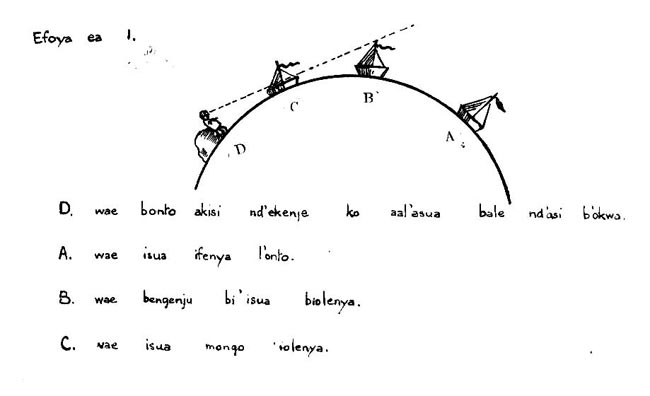 Efoya ea 1.
B
C
D
A
D. wae bonto akisi nd'ekenje ko aal'asua bale nd'asi b'okwa.
A. wae isua ifenya l'onto.
B. wae bengenju bi'isua biolenya.
C. wae isua mongo